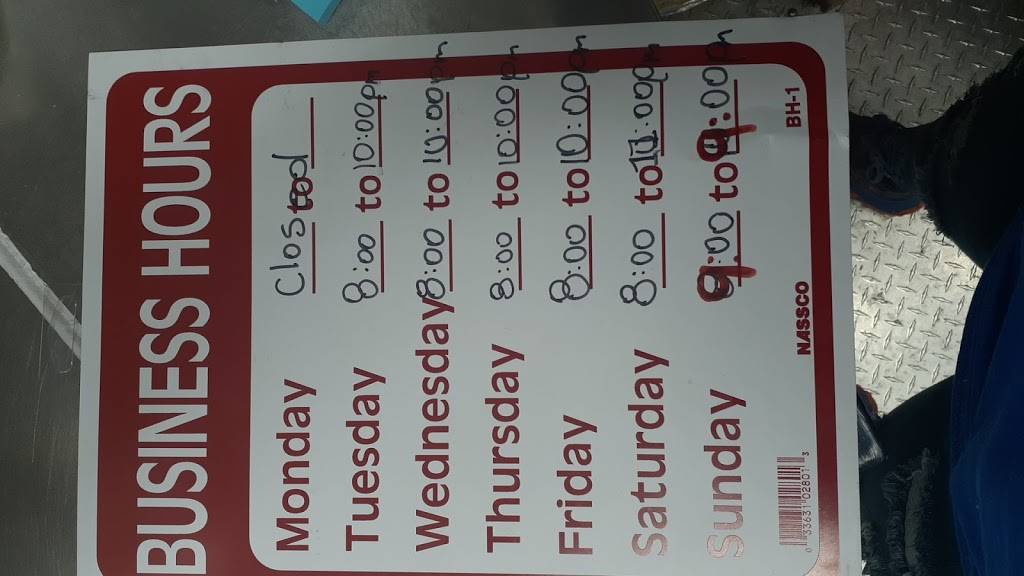 BUSINESS HOURS
Monday Closed to
Tuesday 8:00 to 10:00pm
Wednesday 8:00 to 10:00pm
Thursday 8:00 to 10:00pm
Friday 8:00 to 10:00pm
Saturday 8:00 to :00pm
Sunday 9:00 to 9:00pm
NASSCO BH-1
0 33631 02801 3